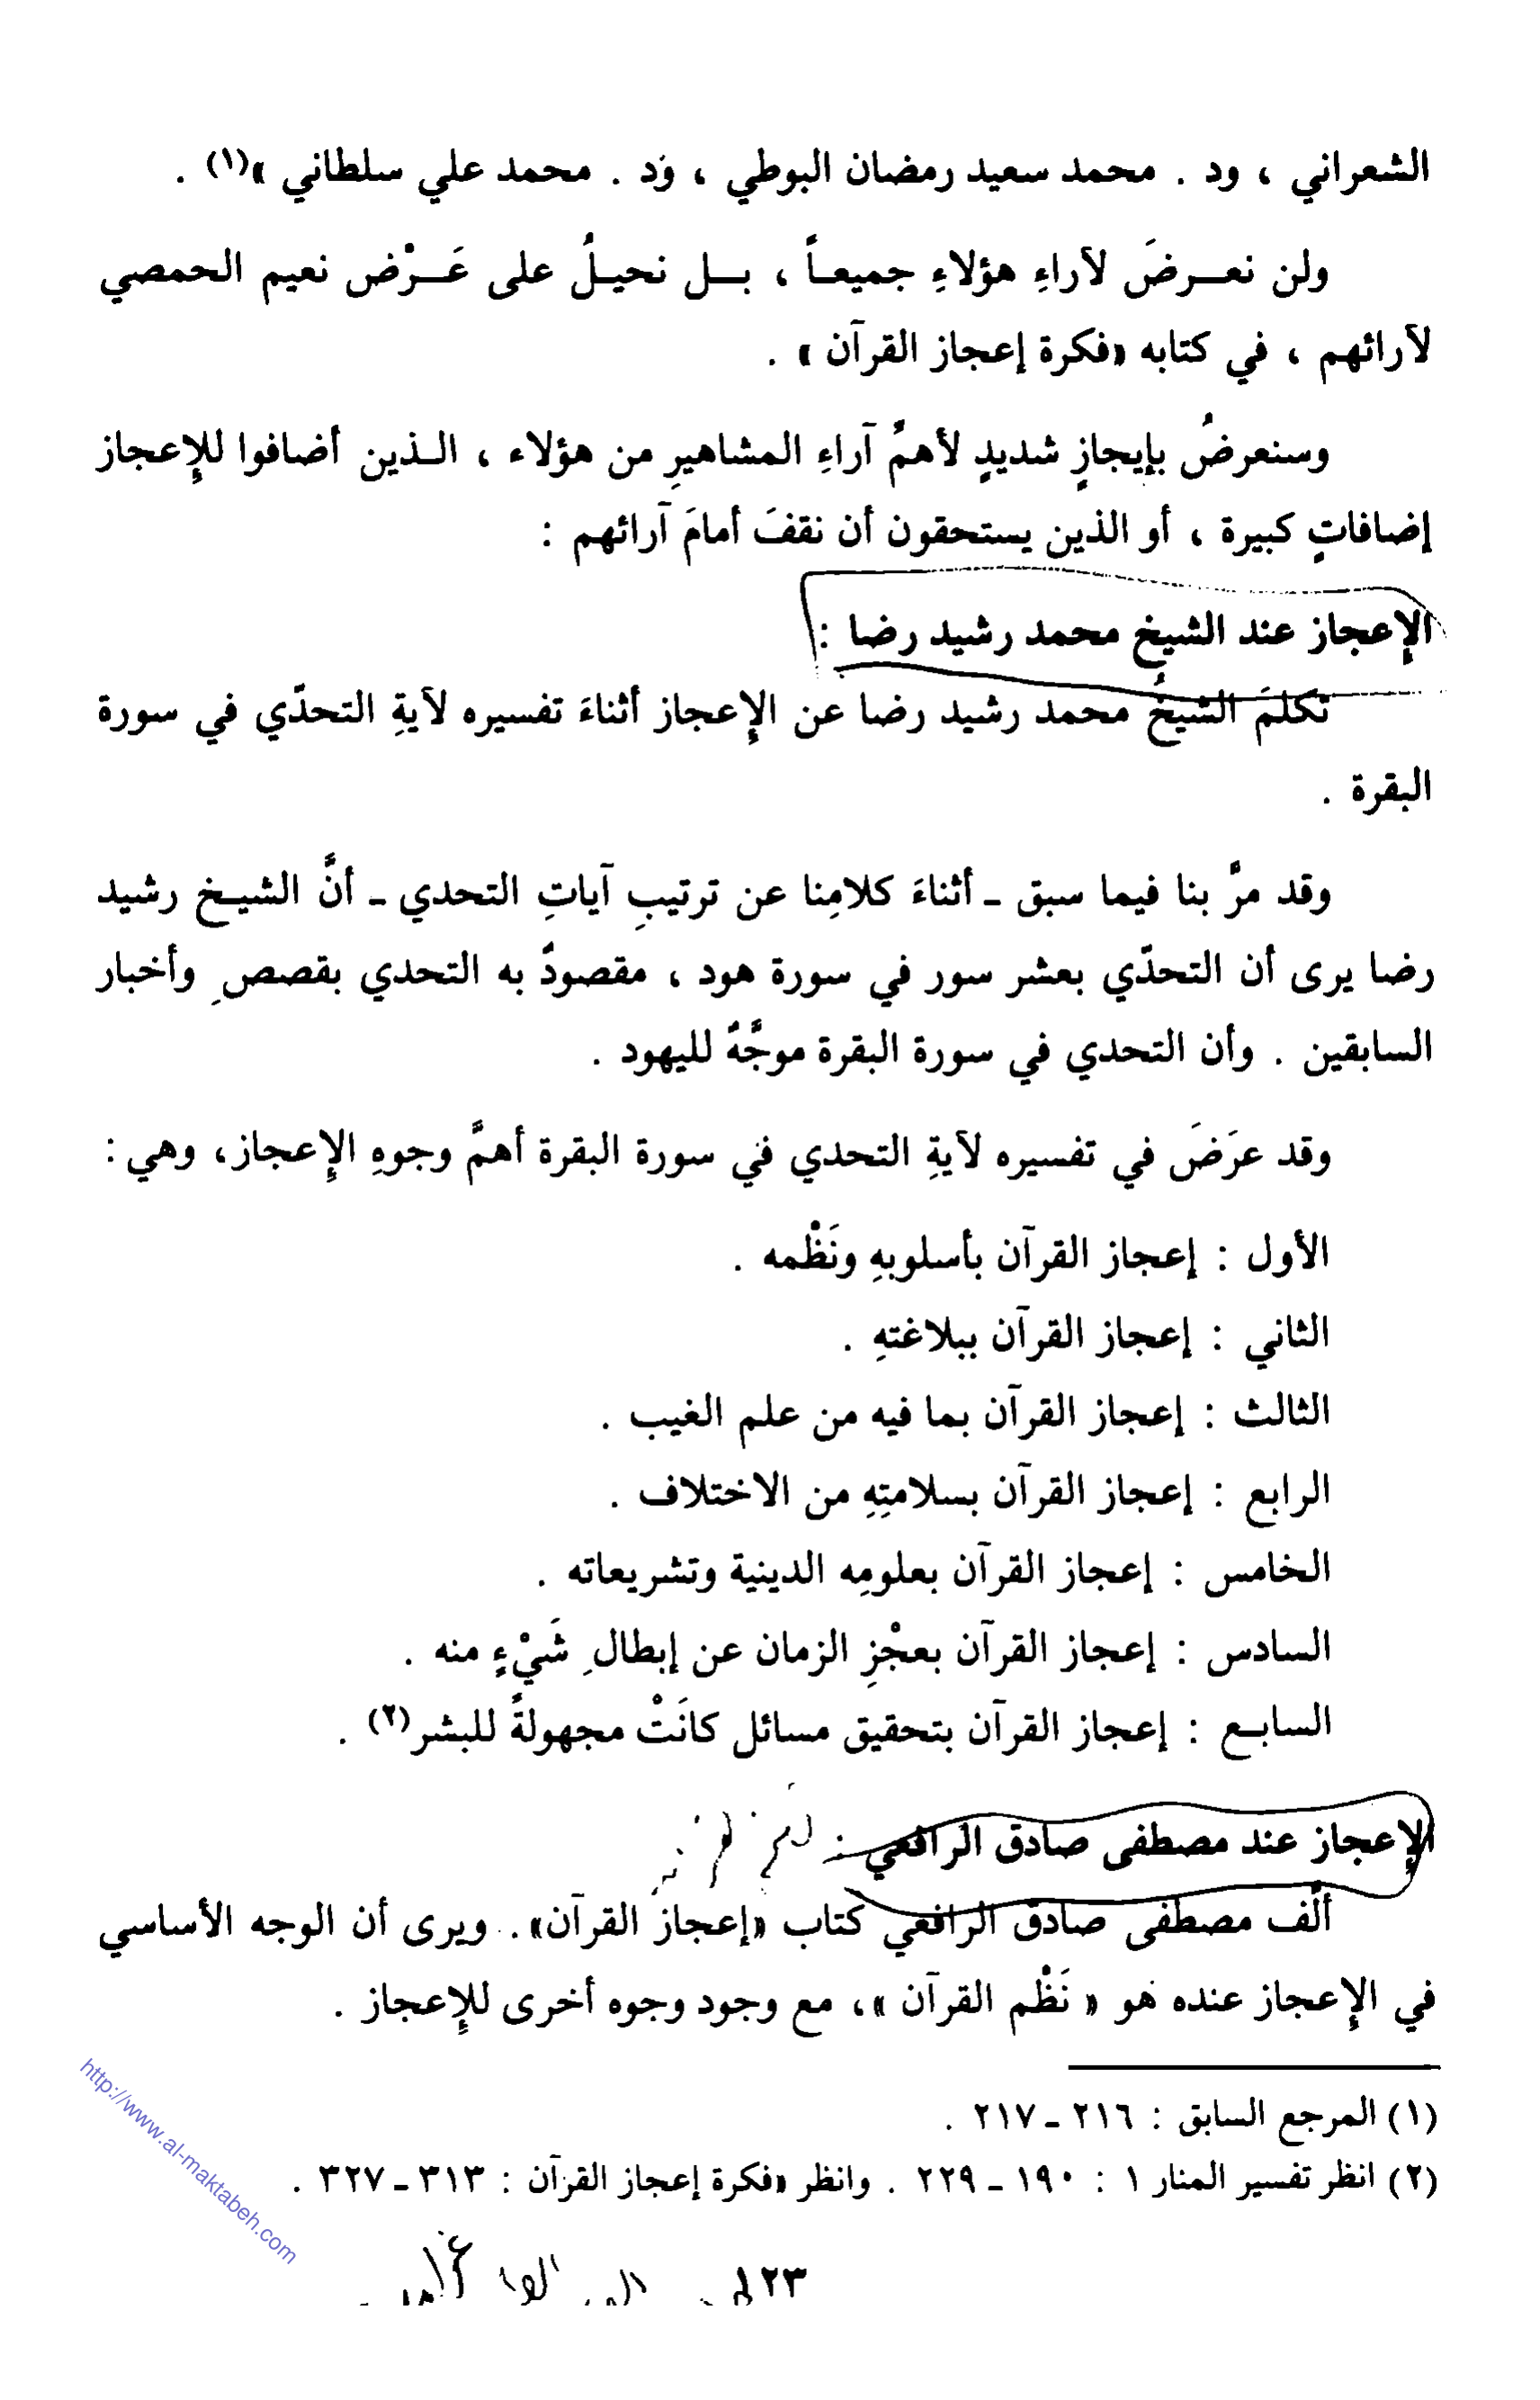 الشعراني ، ود . محمد سعيد رمضان البوطي ، وَد . محمد علي سلطاني »(١) .
ولن نعـرضَ لآراءِ هؤلاءِ جميعـاً ، بـل نحيـلُ على عَـرْض نعيم الحمصي
لآرائهم ، في كتابه «فكرة إعجاز القرآن » .
وسنعرضُ بإيجازٍ شديدٍ لأهمِّ آراءِ المشاهيرِ من هؤلاء ، الـذين أضافوا للإعجاز
إضافاتٍ كبيرة ، أو الذين يستحقون أن نقفَ أمامَ آرائهم :
الإعجاز عند الشيخ محمد رشيد رضا :
تكلمَ الشيخُ محمد رشيد رضا عن الإعجاز أثناءَ تفسيره لآيةِ التحدّي في سورة
البقرة .
وقد مرَّ بنا فيما سبق ـ أثناءَ كلامِنا عن ترتيبِ آياتِ التحدي ـ أنَّ الشيـخ رشيد
رضا يرى أن التحدّي بعشر سور في سورة هود ، مقصودٌ به التحدي بقصصِ وأخبار
السابقين . وأن التحدي في سورة البقرة موجَّهٌ لليهود .
وقد عرَضَ في تفسيره لآيةِ التحدي في سورة البقرة أهمَّ وجوهِ الإعجاز، وهي :
الأول : إعجاز القرآن بأسلوبهِ ونَظْمه .
الثاني : إعجاز القرآن ببلاغتهِ .
الثالث : إعجاز القرآن بما فيه من علم الغيب .
الرابع : إعجاز القرآن بسلامتِهِ من الاختلاف .
الخامس : إعجاز القرآن بعلومِه الدينية وتشريعاته .
السادس : إعجاز القرآن بعجْزِ الزمان عن إبطالِ شَيْءٍ منه .
السابـع : إعجاز القرآن بتحقيق مسائل كانَتْ مجهولةً للبشر(٢) .
الإعجاز عند مصطفى صادق الرافعي :
ألَّف مصطفى صادق الرافعي كتاب «إعجاز القرآن» . ويرى أن الوجه الأساسي
في الإعجاز عنده هو « نَظْم القرآن »، مع وجود وجوه أخرى للإعجاز .
(١) المرجع السابق : ٢١٦ ـ ٢١٧ .
(٢) انظر تفسير المنار ١ : ١٩٠ ـ ٢٢٩ . وانظر «فكرة إعجاز القرآن : ٣١٣ ـ ٣٢٧ .
http://www.al-maktabeh.com
١٢٣